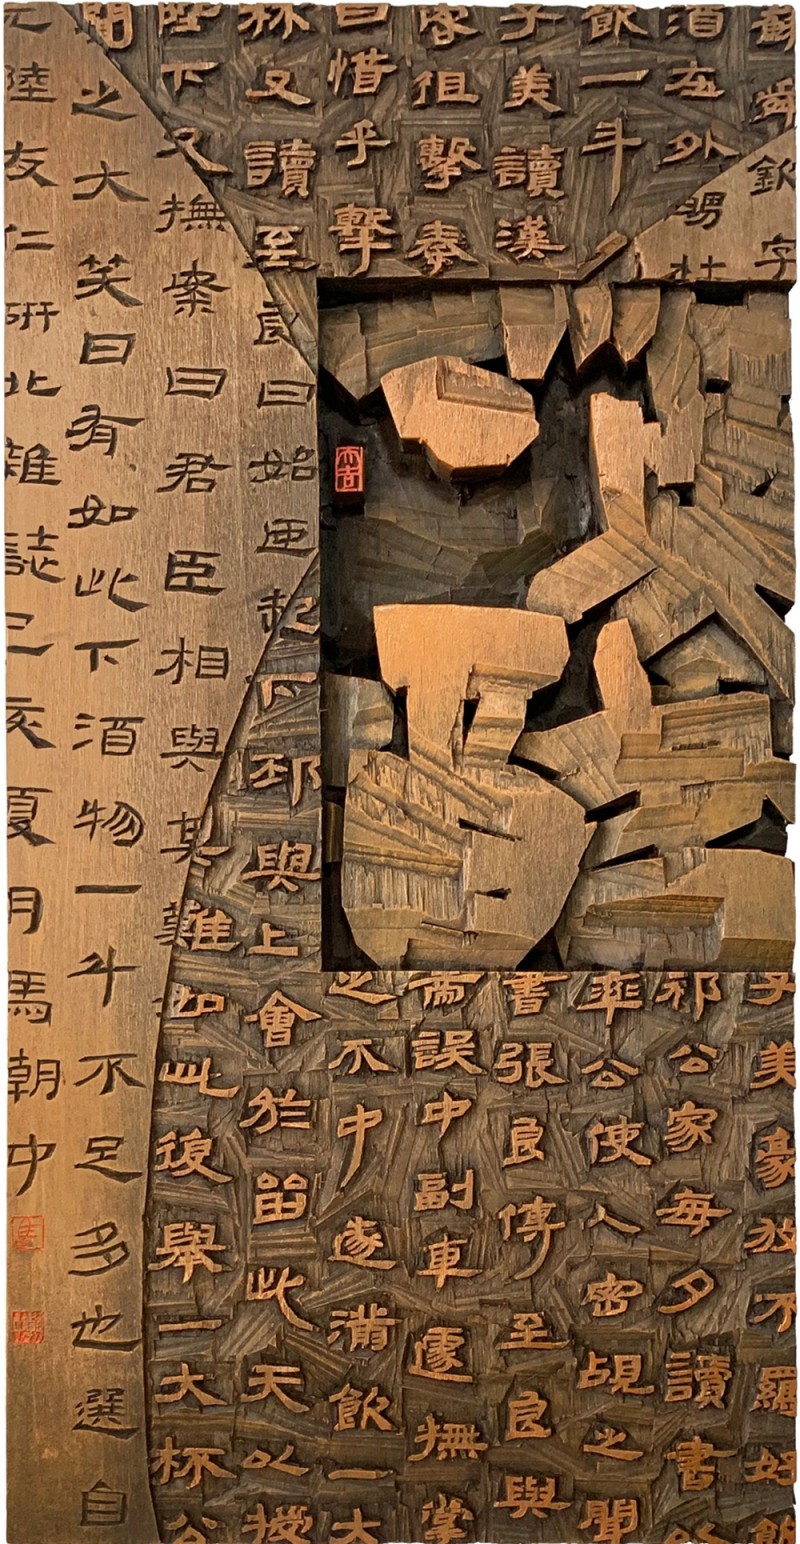 蘇舜欽字子美豪放不羈好飲
酒在外舅杜祁公家每夕讀書以
飲一斗率公使人密覘之聞
子美讀漢書張良傳至良與
客狙擊秦帝誤中副車遽撫掌
曰惜乎擊之不中遂滿飲一大
杯又讀至良曰始臣起下邳與上會於留此天以授
陛下又撫案曰君臣相與其難如此復舉一大杯公
聞之大笑曰有如此下酒物一斗不足多也選自
元陸友仁硏北雜誌己亥夏月馬朝中